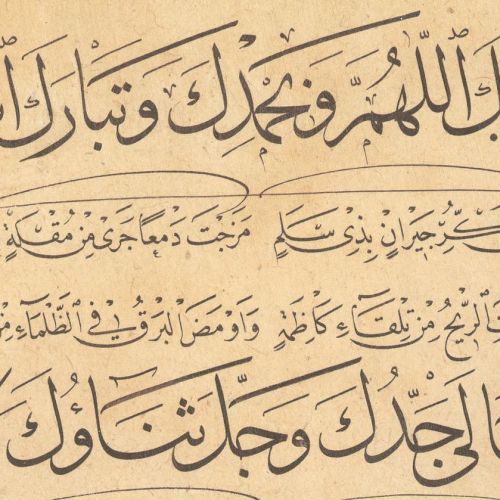 اللّٰهُمَّ وَبِحَمْدِكَ وَتَبَارَكَ
جِيرَانٍ بِذِي سَلَمٍ مَزَجْتَ دَمْعًا جَرَى مِنْ مُقْلَةٍ
الرِّيحُ مِنْ تِلْقَاءِ كَاظِمَةٍ وَاَوْمَضَ الْبَرْقُ فِي الظَّلْمَاءِ مِنْ
جَدُّكَ وَجَلَّ ثَنَاؤُكَ